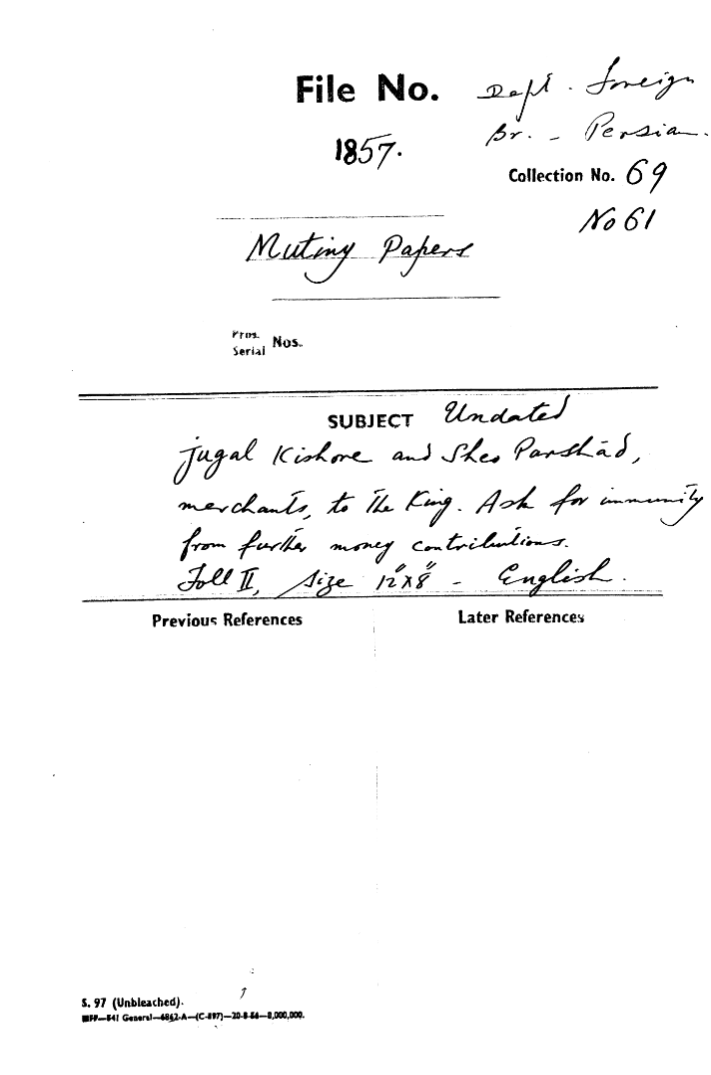 File No. Dept. Foreign
Br. - Persian.
1857.
Collection No. 69
No 61
Mutiny Papers
Pros. Nos.
Serial
SUBJECT Undated
Jugal Kishore and Sheo Parshād,
merchants, to the King. Ask for immunity
from further money contributions.
Foll II, Size 12"x8" - English.
Previous References Later References
S. 97 (Unbleached).
General—6842-A—(C-897)—20-8-56—8,000,000.